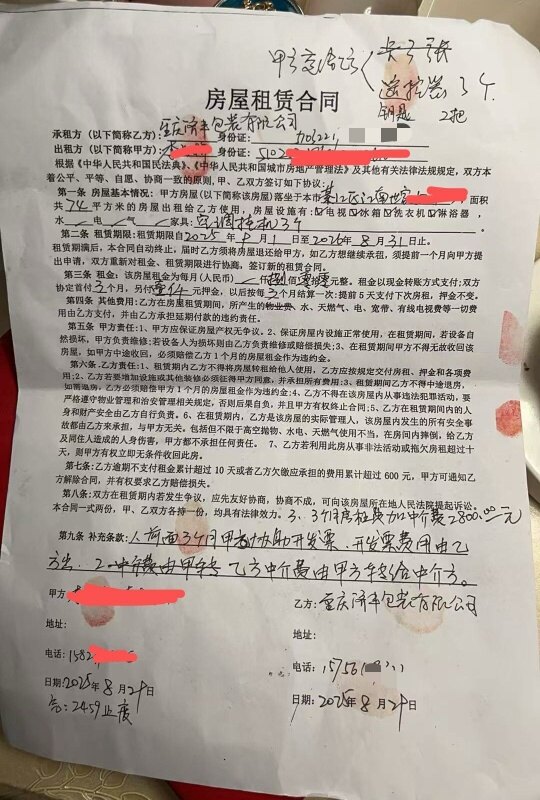 甲方交给乙方
卡 3 张
遥控器 3个
钥匙 2把
房屋租赁合同
重庆济丰包装有限公司
承租方（以下简称乙方）： 身份证：
出租方（以下简称甲方）： 身份证：5102
根据《中华人民共和国民法典》、《中华人民共和国城市房地产管理法》及其他有关法律法规规定，双方本
着公平、平等、自愿、协商一致的原则，甲、乙双方签订如下协议：
第一条 房屋基本情况：甲方房屋（以下简称该房屋）落坐于本市 面积
共 74 平方米的房屋出租给乙方使用，房屋设施有：☑电视☑冰箱☑洗衣机☑淋浴器，
水 电 气 家具：空调挂机3个
第二条 租赁期限：租赁期限自2025年 9月 1 日至2026年 8月31日止。
租赁期满后，本合同自动终止，届时乙方须将房屋退还给甲方，如乙方想继续承租，须提前一个月向甲方提
出申请，双方重新对租金、租赁期限进行协商，签订新的租赁合同。
第三条 租金：该房屋租金为每月（人民币）壹仟捌佰零拾零元整。租金以现金转账方式支付；双方
协定首付3个月，另付壹仟元押金，以后按每3个月结算一次；提前5天支付下次房租，押金不变。
第四条 其他费用：乙方在房屋租赁期间，所产生的物业费、水、天燃气、电、宽带、有线电视费等一切费
用由乙方支付，并由乙方承担延期付款的违约责任。
第五条 甲方责任：1、甲方应保证房屋产权无争议。2、保证房屋内设施正常使用，在租赁期间，若设备自
然损坏，甲方负责维修；若设备人为损坏则由乙方负责维修或赔偿损失；3、在租赁期间甲方不得无故收回该
房屋，如甲方中途收回，必须赔偿乙方1个月的房屋租金作为违约金。
第六条.乙方责任：1、租赁期内乙方不得将房屋转租给他人使用，乙方应按规定交付房租、押金和各项费
用；2、乙方若要增加设施或其他装修必须征得甲方同意，并承担所有费用；3、租赁期间乙方不得中途退房，
如需退房，乙方必须赔偿甲方1个月的房屋租金作为违约金；4、乙方不得在该房屋内从事违法犯罪活动，要
严格遵守物业管理和治安管理相关规定，否则后果自负，并且甲方有权终止合同；5、乙方在租赁期间内的人
身和财产安全由乙方自行负责。6、在租赁期内，乙方是该房屋的实际管理人，该房屋内发生的所有安全事
故都由乙方来承担，与甲方无关。包括但不限于高空抛物、水电、天燃气使用不当，在房间内摔倒，给乙方
及同住人造成的人身伤害，甲方都不承担任何责任。 7、乙方若利用此房从事非法活动或拖欠房租超过十
天，则甲方有权立即无条件收回此房。
第七条：乙方逾期不支付租金累计超过10天或者乙方欠缴应承担的费用累计超过600元，甲方可通知乙
方解除合同，并有权要求乙方赔偿损失。
第八条：双方在租赁期内若发生争议，应先友好协商，协商不成，可向该房屋所在地人民法院提起诉讼。
本合同一式两份，甲、乙双方各持一份，均具有法律效力。3、3个月房租另加中介费2800.00元
第九条 补充条款：1、前面3个月甲方协助开发票，开发票费用由乙
方出。2、中介费由甲转 乙方中介费由甲方转给中介方。
甲方：
乙方：重庆济丰包装有限公司
地址：
地址：
电话：1582
电话：15756
日期：2025年 8月29日
日期：2025年 8月29日
2459止度